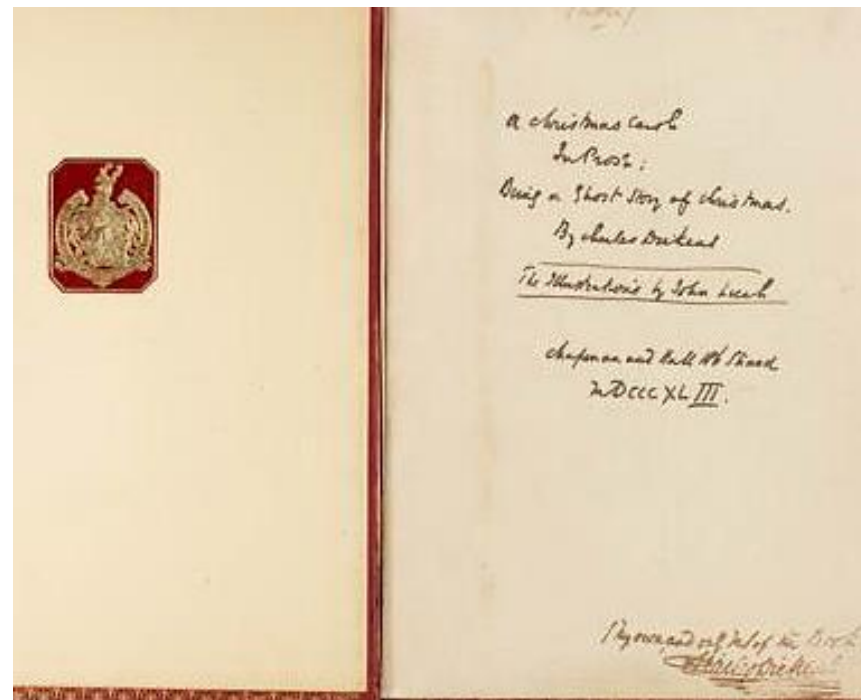 A Christmas Carol
In Prose;
Being a Ghost Story of Christmas.
By Charles Dickens
The Illustrations by John Leech
Chapman and Hall 186 Strand
MDCCCXLIII.
My own, and only MS of the Book
Charles Dickens